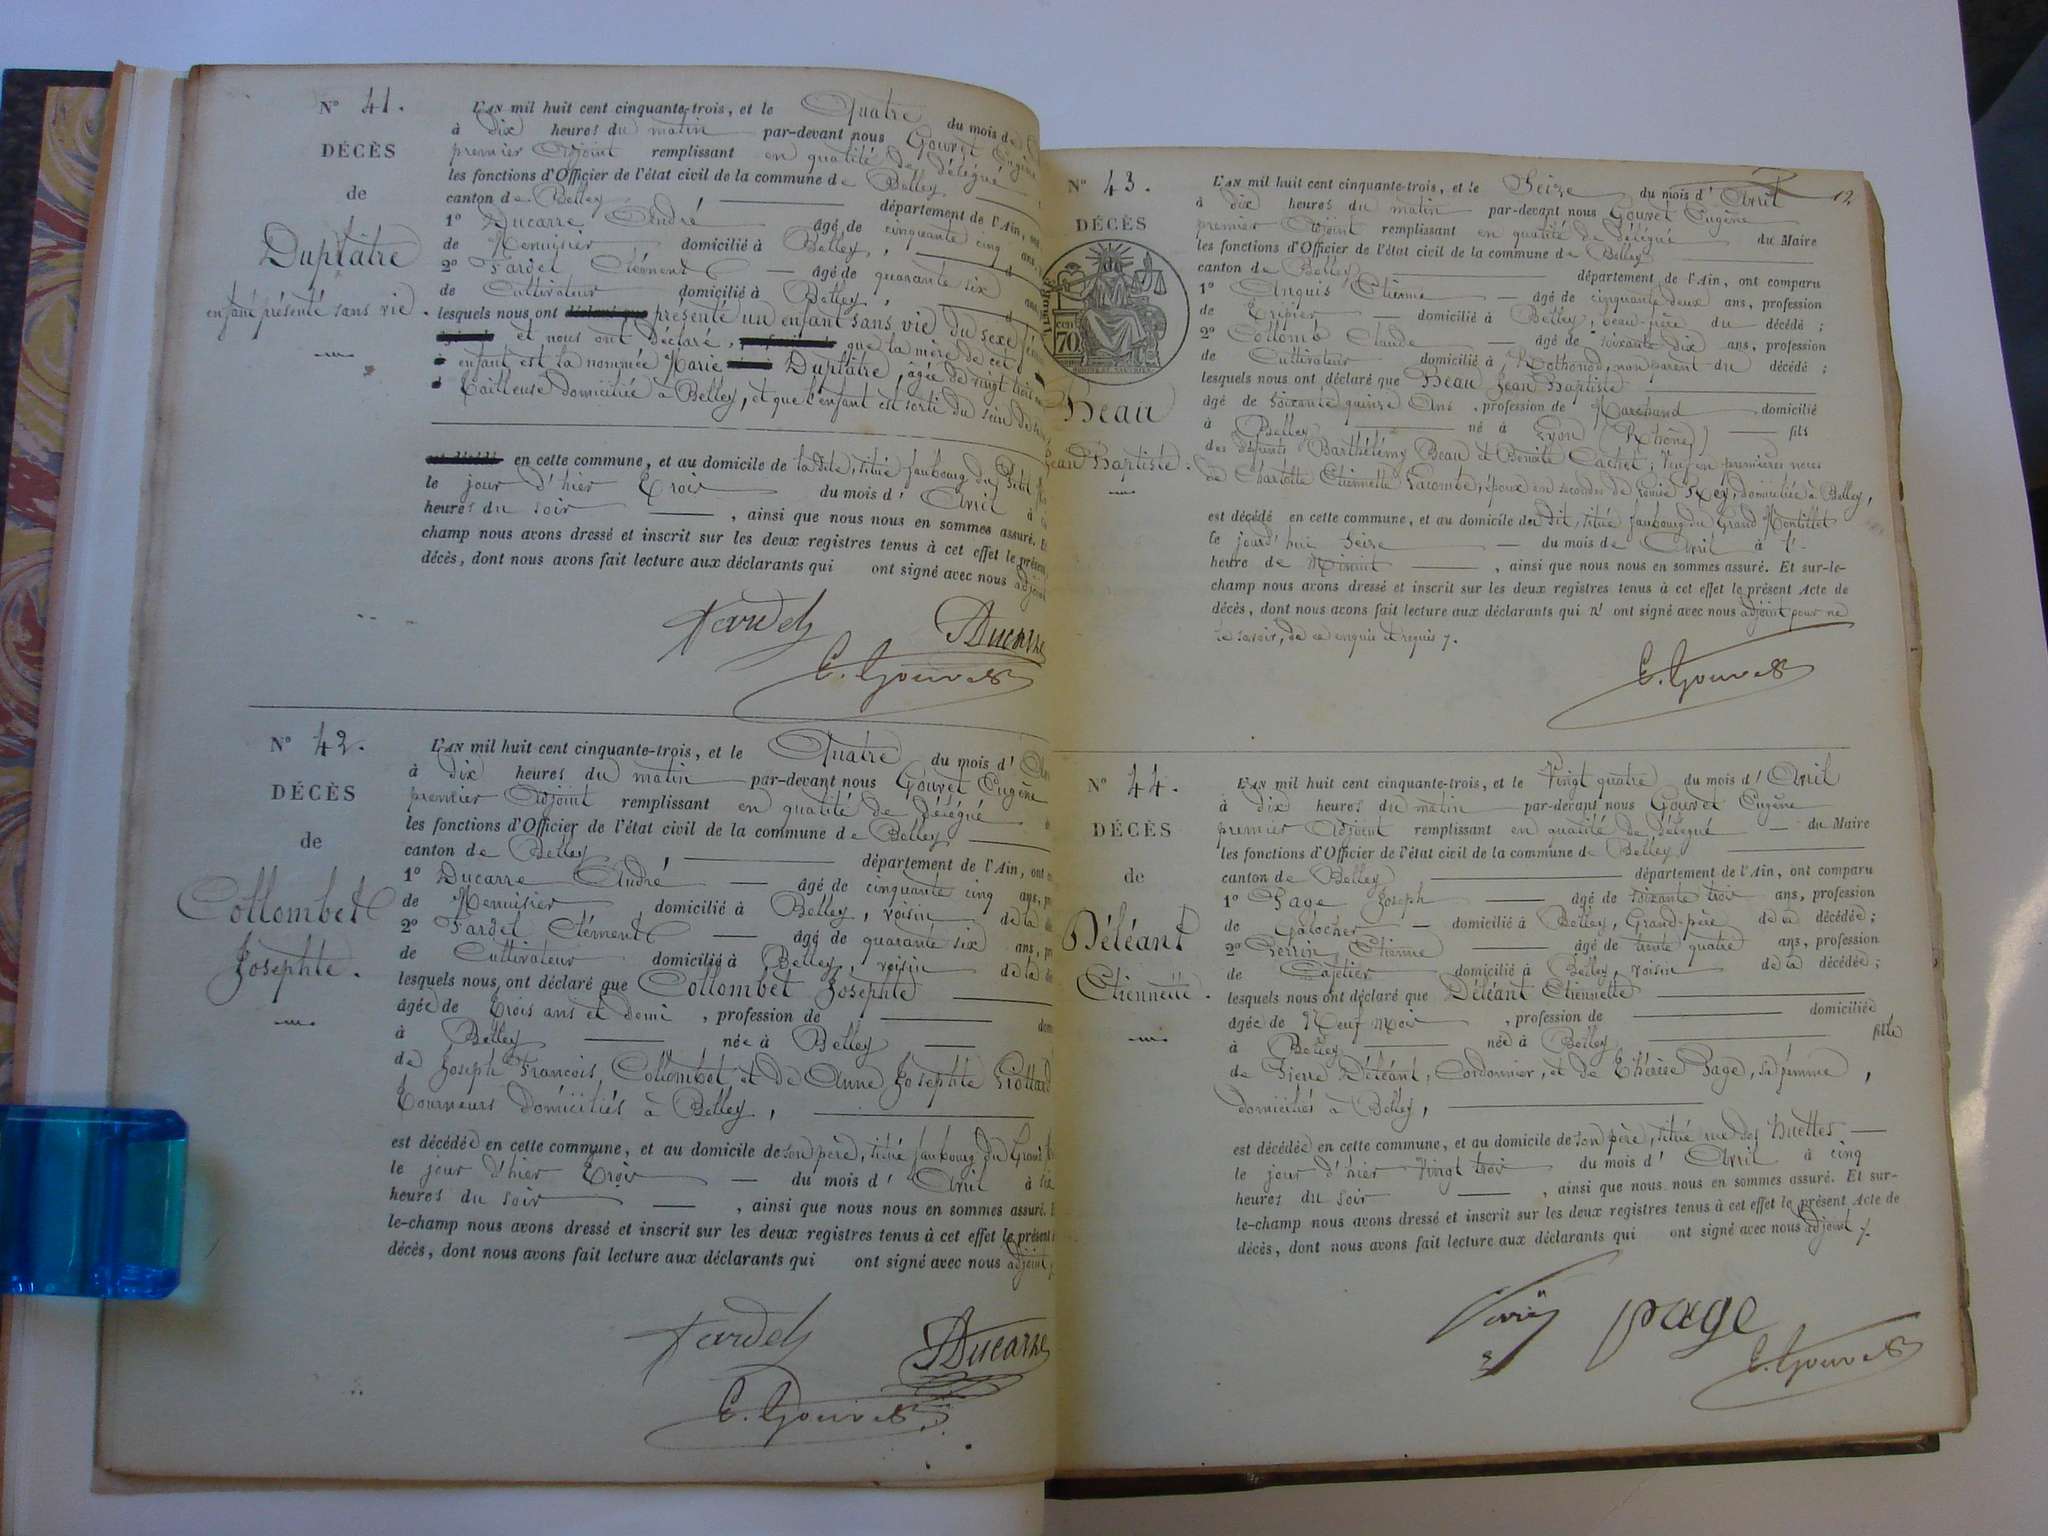 N° 41.
DÉCÈS
de
Duplâtre
enfant présenté sans vie.
L'AN mil huit cent cinquante-trois, et le Quatre du mois d
à dix heures du matin par-devant nous Gouvet Eugène
premier Adjoint remplissant en qualité de délégué
les fonctions d'Officier de l'état civil de la commune de Belley
canton de Belley département de l'Ain, ont
1° Ducarre André âgé de cinquante cinq ans,
de Menuisier domicilié à Belley,
2° Tardel Clément âgé de quarante six ans
de Cultivateur domicilié à Belley,
lesquels nous ont présenté un enfant sans vie du sexe
et nous ont déclaré, que la mère de cet
enfant est la nommée Marie Duplâtre, âgée de vingt trois
Tailleuse domiciliée à Belley, et que l'enfant est sorti du sein de
en cette commune, et au domicile de la dite, situé faubourg du Petit
le jour d'hier Trois du mois d'Avril à
heures du soir , ainsi que nous nous en sommes assuré.
champ nous avons dressé et inscrit sur les deux registres tenus à cet effet le présent
décès, dont nous avons fait lecture aux déclarants qui ont signé avec nous adjoint
Tardel
Ducarre
E. Gouvet
N° 42.
DÉCÈS
de
Collombet
Josephte.
L'AN mil huit cent cinquante-trois, et le Quatre du mois d'
à dix heures du matin par-devant nous Gouvet Eugène
premier Adjoint remplissant en qualité de délégué
les fonctions d'Officier de l'état civil de la commune de Belley
canton de Belley département de l'Ain, ont
1° Ducarre André âgé de cinquante cinq ans,
de Menuisier domicilié à Belley, voisin de la
2° Tardel Clément âgé de quarante six ans,
de Cultivateur domicilié à Belley, voisin de la
lesquels nous ont déclaré que Collombet Josephte
âgée de Trois ans et demi , profession de
à Belley née à Belley
de Joseph François Collombet et de Anne Josephte Liottard
Tourneurs domiciliés à Belley,
est décédée en cette commune, et au domicile de son père, situé faubourg du Grand
le jour d'hier Trois du mois d'Avril à
heures du soir , ainsi que nous nous en sommes assuré.
le-champ nous avons dressé et inscrit sur les deux registres tenus à cet effet le présent
décès, dont nous avons fait lecture aux déclarants qui ont signé avec nous adjoint
Tardel
Ducarre
E. Gouvet
12.
N° 43.
DÉCÈS
de
TIMBRE
70
Beau
Jean Baptiste.
L'AN mil huit cent cinquante-trois, et le Seize du mois d'Avril
à dix heures du matin par-devant nous Gouvet Eugène
premier Adjoint remplissant en qualité de délégué du Maire
les fonctions d'Officier de l'état civil de la commune de Belley
canton de Belley département de l'Ain, ont comparu
1° Anquis Etienne âgé de cinquante deux ans, profession
de Fripier domicilié à Belley, beau-père du décédé ;
2° Collomb Claude âgé de soixante dix ans, profession
de Cultivateur domicilié à Rothonod, non parent du décédé ;
lesquels nous ont déclaré que Beau Jean Baptiste
âgé de soixante quinze Ans , profession de Marchand domicilié
à Belley né à Lyon (Rhône) fils
des défunts Barthélémy Beau et Benoîte Cachet ; Veuf en premières noces
de Charlotte Etiennette Lacombe, époux en secondes de Louise Rey, domiciliée à Belley,
est décédé en cette commune, et au domicile du dit, situé faubourg du Grand Montillet
le jourd'hui Seize du mois de Avril à l'
heure de Minuit , ainsi que nous nous en sommes assuré. Et sur-le-
champ nous avons dressé et inscrit sur les deux registres tenus à cet effet le présent Acte de
décès, dont nous avons fait lecture aux déclarants qui n'ont signé avec nous adjoint pour ne
le savoir, de ce enquis et requis.
E. Gouvet
N° 44.
DÉCÈS
de
Déléant
Etiennette.
L'AN mil huit cent cinquante-trois, et le Vingt quatre du mois d'Avril
à dix heures du matin par-devant nous Gouvet Eugène
premier Adjoint remplissant en qualité de délégué du Maire
les fonctions d'Officier de l'état civil de la commune de Belley
canton de Belley département de l'Ain, ont comparu
1° Page Joseph âgé de soixante trois ans, profession
de Galocher domicilié à Belley, Grand-père de la décédée ;
2° Perrin Etienne âgé de trente quatre ans, profession
de Cafetier domicilié à Belley, voisin de la décédée ;
lesquels nous ont déclaré que Déléant Etiennette
âgée de Neuf mois , profession de domiciliée
à Belley née à Belley fille
de Pierre Déléant, Cordonnier, et de Thérèse Page, sa femme,
domiciliés à Belley,
est décédée en cette commune, et au domicile de son père, situé rue des Muettes
le jour d'hier Vingt trois du mois d'Avril à cinq
heures du soir , ainsi que nous nous en sommes assuré. Et sur-
le-champ nous avons dressé et inscrit sur les deux registres tenus à cet effet le présent Acte de
décès, dont nous avons fait lecture aux déclarants qui ont signé avec nous adjoint
page
E. Gouvet